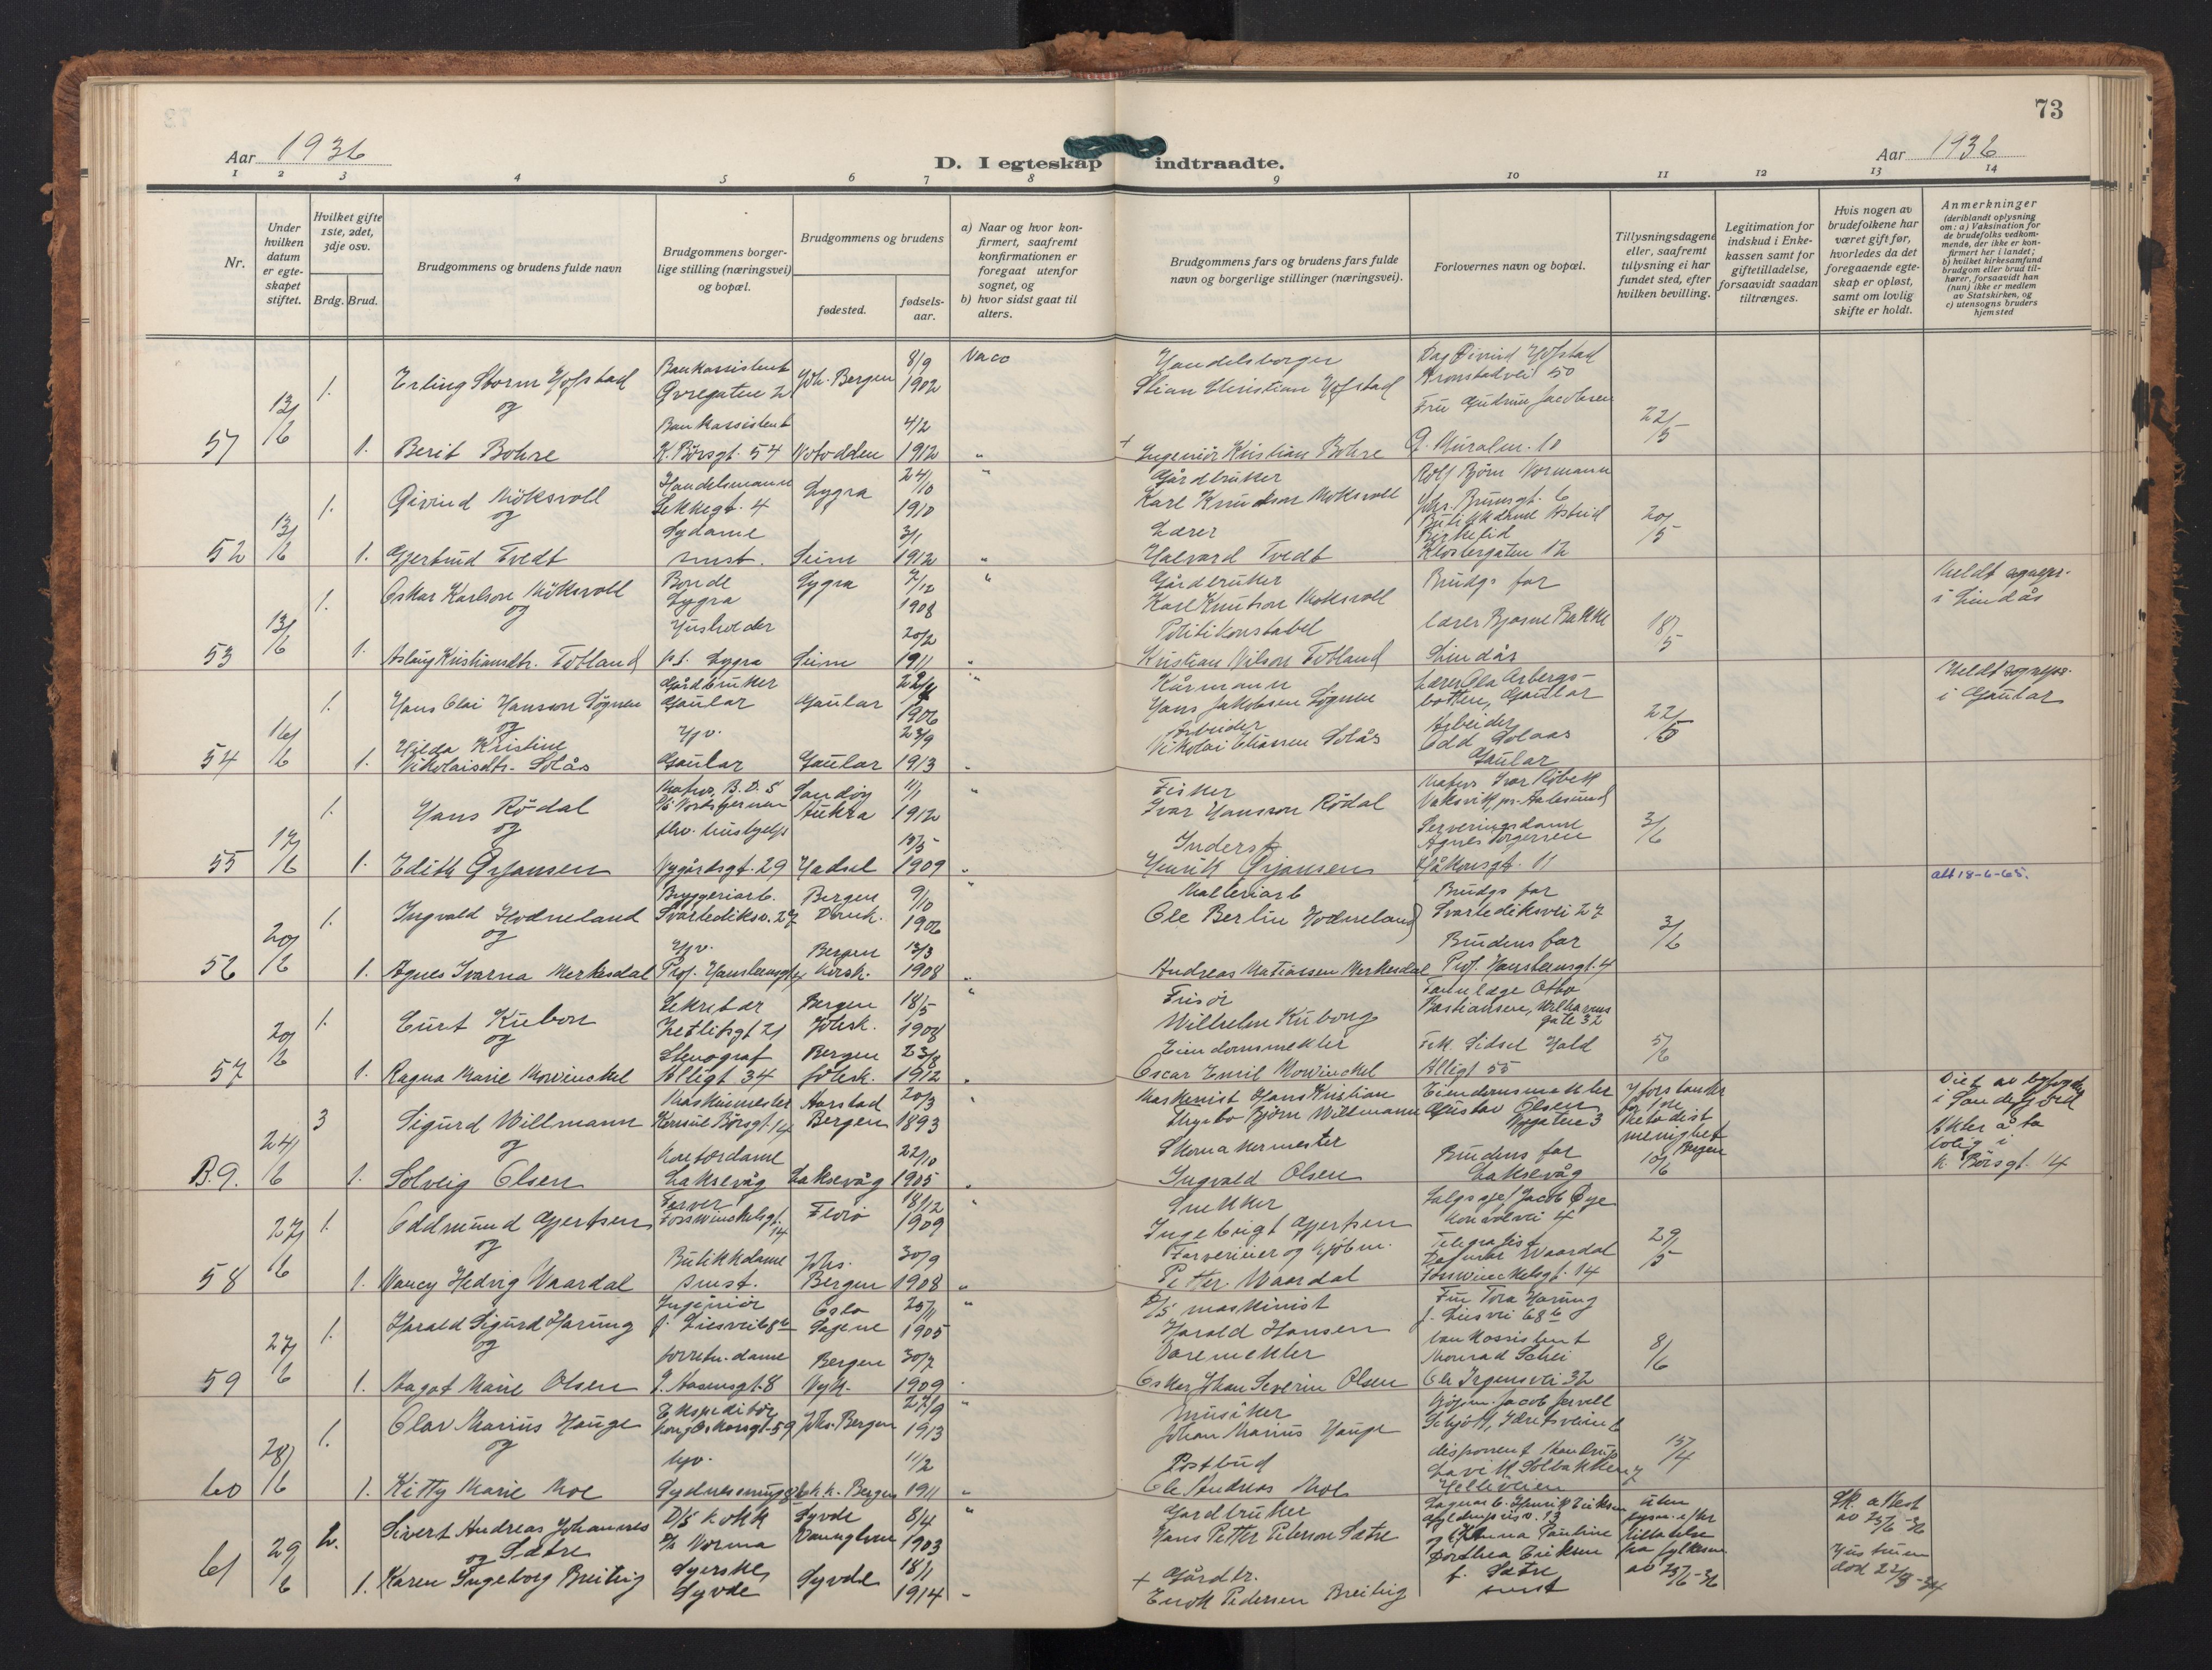 73
Aar 1936
D. I egteskap indtraadte.
Aar 1936
1 2 3 4 5 6 7 8 9 10 11 12 13 14
Nr.
Under hvilken datum er egteskapet stiftet.
Hvilket gifte 1ste, 2det, 3dje osv.
Brdg. Brud.
Brudgommens og brudens fulde navn
Brudgommens borgerlige stilling (næringsvei) og bopæl.
Brudgommens og brudens
fødested.
fødselsaar.
a) Naar og hvor konfirmert, saafremt konfirmationen er foregaat utenfor sognet, og
b) hvor sidst gaat til alters.
Brudgommens fars og brudens fars fulde navn og borgerlige stillinger (næringsvei).
Forlovernes navn og bopæl.
Tillysningsdagene eller, saafremt tillysning ei har fundet sted, efter hvilken bevilling.
Legitimation for indskud i Enkekassen samt for giftetilladelse, forsaavidt saadan tiltrænges.
Hvis nogen av brudefolkene har været gift før, hvorledes da det foregaaende egteskap er opløst, samt om lovlig skifte er holdt.
Anmerkninger
(deriblandt oplysning om: a) Vaksination for de brudefolks vedkommende, der ikke er konfirmert her i landet; b) hvilket kirkesamfund brudgom eller brud tilhører, forsaavidt han (hun) ikke er medlem av Statskirken, og c) utensogns bruders hjemsted
13/6 1. Erling Storm Hofstad Bankassistent Øvregaten 2 Joh. Bergen 8/9 1902 Vacc Handelsborger Stian Christian Hofstad Dag Øivind Hofstad Kronstadvei 50
og
57 1. Berit Bohre Bankassistent K. Børsgt. 54 Notodden 4/2 1912 " + Ingeniør Kristian Bohre Fru Gudrun Jacobsen Ø. Muralm. 10 22/5
13/6 1. Øivind Möksvoll Handelsmann Lekkegt. 4 Lygra 24/10 1910 " Gårdbruker Karl Knudson Moksvoll Rolf Bjørn Normann Johs. Brunsgt. 6
og
52 1. Gjertrud Tvedt Sydame smst. Seim 3/1 1912 " Lærer Halvard Tvedt Butikkdame Astrid Birkelid Klostergaten 12 20/5
13/6 1. Oskar Karlson Möksvoll Bonde Lygra Lygra 7/12 1908 " Gårdbruker Karl Knutson Moksvoll Brudgs far Meldt sogneps. i Lindås
og
53 1. Aslaug Kristiansdtr. Totland Husholder p.t. Lygra Seim 20/2 1911 " Politikonstabel Kristian Nilson Totland lærer Bjarne Bakke Lindås 18/5
16/6 1. Hans Olai Hansson Søgnen Gårdbruker Gaular Gaular 1906 " Kårmann Hans Jakobsen Søgnen Lærer Ola Arbergsbotten, Gaular Meldt sogneps. i Gaular
og
54 1. Hilda Kristine Nikolaisdtr. Solås Hjv. Gaular Gaular 23/9 1913 " Arbeider Nikolai Eliassen Solås Arbeider Odd Solaas Gaular 22/5
17/6 1. Hans Rödal Matros, B.D.S. Sandøy Aukra 11/1 1912 " Fisker Ivar Hansson Rödal Matros Ivar Röbekk Vaksvik pr. Aalesund
og
55 1. Edith Ørjansen fhv. hushjelp Nygårdsgt. 29 Hadsel 13/5 1909 " Inderst Henrik Ørjansen Serveringsdame Agnes Torgersen Håkonsgt. 11 3/6
20/6 1. Ingvald Hodneland Bryggeriarb. Svartediksv. 27 Bergen Domk. 9/10 1906 " Malteriarb Ole Berlin Hodneland Brudgs far Svartediksvei 27 att 18-6-65.
og
56 1. Agnes Ivarna Merkesdal Hjv. Prof. Hansteensgt. 4 Bergen korsk. 13/3 1908 " Andreas Matiassen Merkesdal Brudens far Prof. Hansteensgt. 4 3/6
20/6 1. Curt Kubon Sekretær Ketlitsgt 21 Bergen Johsk. 18/5 1908 " Frisör Wilhelm Kubon Tannlæge Otto Bastiansen, Welhavens gate 32
og
57 1. Ragna Marie Mowinckel Stenograf Allégt 34 Bergen Johsk. 23/8 1912 " Eiendomsmekler Oscar Emil Mowinckel Frk. Sidsel Hald Allégt 55 5/6
24/6 3 Sigurd Willmann Maskinmester Konsul Börsgt. 14 Aarstad Bergen 20/3 1893 " Maskinist Hans Kristian Thybo Bjørn Willmann Eiendomsmekler Gustav Olsen Nygaten 3 Viet av byfogd i Sandefjord
og
B.9. 1. Solveig Olsen Kontordame Laksevåg Laksevåg 22/10 1905 " Skomakermester Ingvald Olsen Brudens far Laksevåg forstander for 1ste Metodist menighet Bergen 10/6 Akter å ta bolig i K. Börsgt. 14
27/6 1. Oddmund Gjertsen Farver Fosswinckelsgt. 14 Florø 18/12 1909 " Snekker Ingebrigt Gjertsen Salgssjef Jacob Øye Konowsvei 4
og
58 1. Nancy Hedvig Waardal Butikkdame smst. Johs. Bergen 30/9 1908 " Farveriier og kjöbm. Petter Waardal Telegrafist Dagmar Waardal Fosswinckelsgt. 14 29/5
27/6 1. Harald Sigurd Harung Ingeniør J. Liesvei 68 b Oslo Sagene 25/11 1905 " D/S maskinist Harald Hansen Fru Tora Harung J. Liesvei 68 b
og
59 1. Magot Marie Olsen forretn.dame I. Aasensgt. 8 Bergen Nyk. 30/7 1909 " Varemekler Oskar Johan Severin Olsen bankassistent Monrad Schei Ole Irgensvei 32 8/6
28/6 1. Olav Marius Hauge Ekspeditör Kong Oskarsgt. 59 Johs. Bergen 27/9 1913 " Musiker Johan Marius Hauge Jacob Jervell Schjött, Idrettsveien 6
og
60 1. Kitty Marie Moe hjv. Sydnessmug Bergen 11/2 1911 " Postbud Ole Andreas Moe disponent Mandrup Solbakken Helleveien 15/4
29/6 2. Sivert Andreas Johannes Sætre D/S kokk D/S Norma Syvde Vanylven 8/4 1903 " Gardbruker Hans Petter Peterson Sætre Henrik Eriksen 13 uten lysn. e/kr tillatelse fra fylkesm. av 25/6-36 Sk. attest av 25/6-36
og
61 1. Karen Ingeborg Breitvig Syerske Syvde Syvde 18/1 1914 " + Gårdbr. Enok Pedersen Breitvig og Anna Pauline Dorthea Eriksen f. Sætre smst Hustruen död 22/8-34